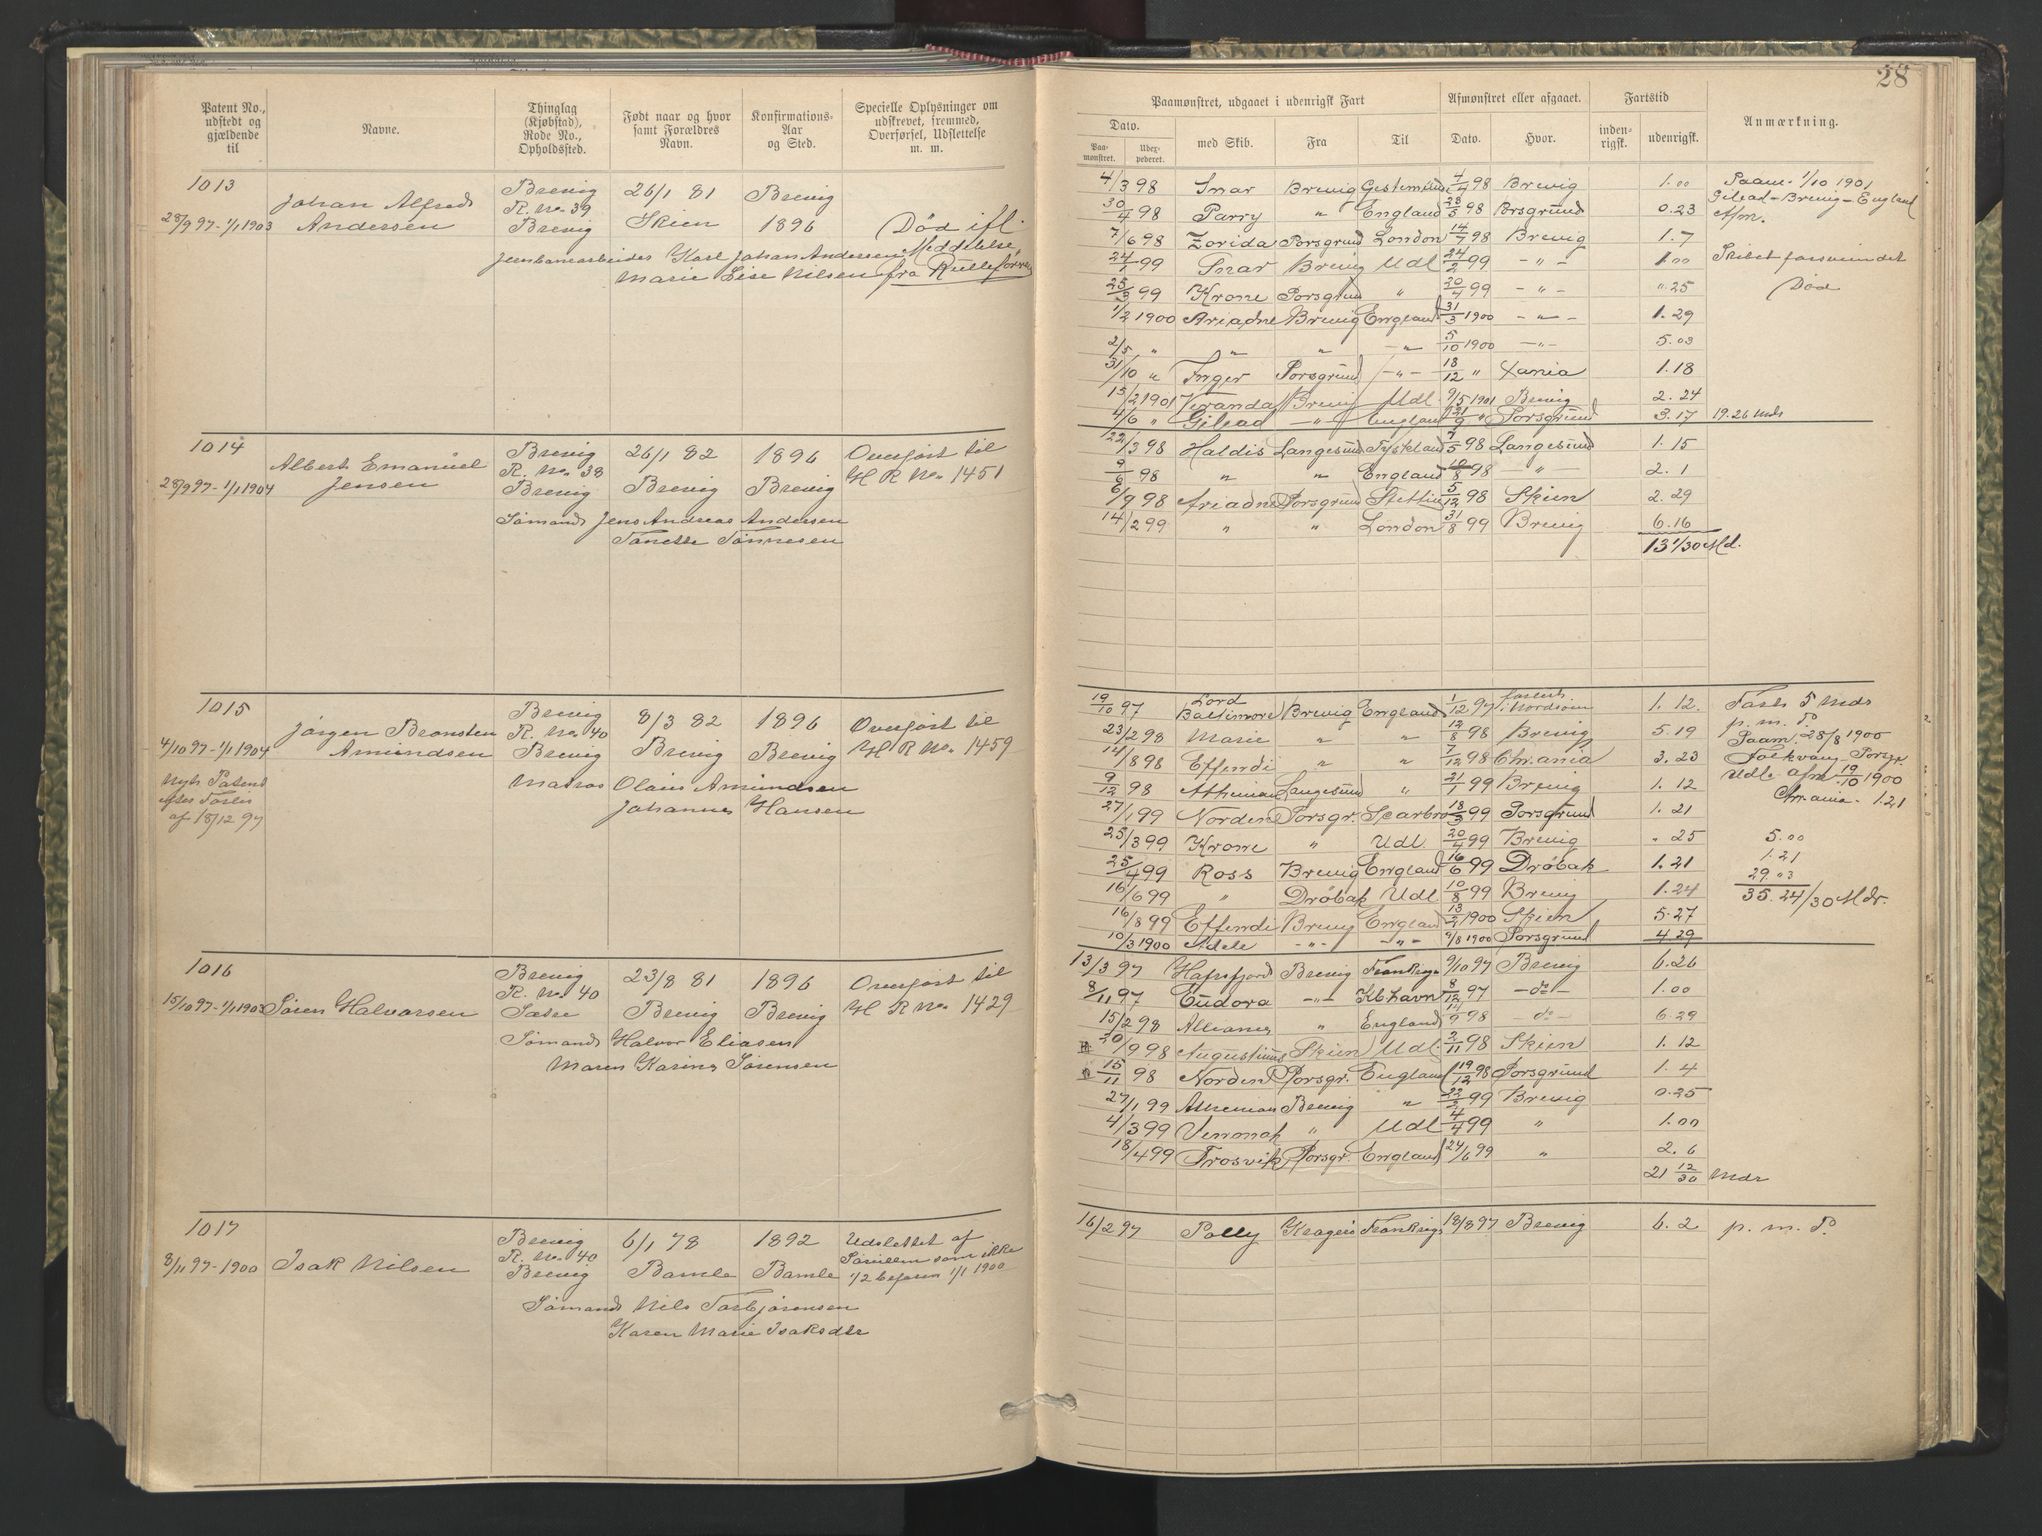 28
Patent No., udstedt og gjældende til
Navne.
Thinglag (Kjøbstad), Rode No., Opholdssted.
Født naar og hvor samt Forældres Navn.
Konfirmations-Aar og Sted.
Specielle Oplysninger om udskrevet, fremmed, Overførsel, Udslettelse m. m.
Paamønstret, udgaaet i udenrigsk Fart
Afmønstret eller afgaaet.
Fartstid
Anmærkning.
Dato.
Paamønstret.
Udexpederet.
med Skib.
Fra
Til
Dato.
Hvor.
indenrigsk.
udenrigsk.
1013
28/9 97-1/1 1903
Johan Alfred Andersen
Brevig R. No. 39 Brevig
26/1 81 Skien
Brevig 1896
Død ifl. Meddelelse fra Rulleføreren
Jernbanearbeider Karl Johan Andersen
Marie Lise Nilsen
4/3 98 Snar Brevig Gestemünd 4/4 98 Brevig 1.00
30/4 98 Parry " England 23/5 98 Porsgrund 0.23
7/6 98 Zorida Porsgrund London 14/7 98 Brevig 1.7
24/1 99 Snar Brevig Udl 24/2 99 - " - 1.00
25/3 99 Krone Porsgrund " 20/4 99 - " - ".25
1/2 1900 Ariadne Brevig England 31/3 1900 - " - 1.29
2/5 " " " - " - 5/10 1900 - " - 5.03
31/10 " Inger Porsgrund - " - 18/12 " Xania 1.18
15/2 1901 Veranda Brevig Udl 9/5 1901 Brevig 2.24
4/6 " Gilead - " - England 21/9 " Porsgrund 3.17 19.26 Mds
Paam. 1/10 1901
Gilead - Brevig - England
Afm.
Skibet forsvundet
Død
1014
28/9 97-1/1 1904
Albert Emanuel Jensen
Brevig R. No. 38 Brevig
26/1 82 Brevig
1896 Brevig
Overført til H R No. 1451
Sømand Jens Andreas Andersen
Tanette Tønnesen
22/3 98 Haldis Langesund Tyskland 7/5 98 Langesund 1.15
9/6 98 " " England 10/8 98 - " - 2.1
6/9 98 Ariadne Porsgrund Stettin 5/12 98 Skien 2.29
14/2 99 " " London 31/8 99 Brevig 6.16
13 1/30 Md.
1015
4/10 97-1/1 1904
Nyt Patent efter Forlis af 18/12 97
Jørgen Bronsten Amundsen
Brevig R. No. 40 Brevig
8/3 82 Brevig
1896 Brevig
Overført til H R No. 1459
Matros Olaus Amundsen
Johanne Hansen
19/10 97 Lord Baltimore Brevig England 1/12 97 forlist i Nordsøen 1.12.
23/2 98 Marie " " 12/8 98 Brevig 5.19
14/8 98 Effendi " " 7/12 98 Chr.ania 3.23
9/12 98 Athenian Langesund " 21/1 99 Brevig 1.12
27/1 99 Norden Porsgr. Scarbro 18/3 99 Porsgrund 1.21
25/3 99 Krone " Udl 20/4 99 Brevig ".25
25/4 99 Ross Brevig England 16/6 99 Drøbak 1.21
16/6 99 " Drøbak Udl 10/8 99 Brevig 1.24
16/8 99 Effendi Brevig England 13/2 1900 Skien 5.27
10/3 1900 Adele - " - - " - 9/8 1900 Porsgrund 4.29
Farts 5 Mds
p. m. P.
Paam. 28/8 1900
Folkvang - Porsgr
Udl. afm 19/10 1900
Chr.ania - 1.21
5.00
1.21
29.03
35.24/30 Mdr.
1016
15/10 97-1/1 1903
Søren Halvorsen
Brevig R. No. 40 Sætre
23/8 81 Brevig
1896 Brevig
Overført til H R No. 1429
Sømand Halvor Eliasen
Maren Karine Sørensen
13/3 97 Hafrsfjord Brevig Frankrige 9/10 97 Brevig 6.26
8/11 97 Eudora - " - Kbhavn 8/12 97 - do - 1.00
15/2 98 Alliance " England 14/9 98 - do - 6.29
20/9 98 Augustinus Skien Udl. 2/11 98 Skien 1.12
15/11 98 Norden Porsgr. England 19/12 98 Porsgrund 1.4
27/1 99 Athenian Brevig " 22/2 99 Brevig 0.25
4/3 99 Veronah " Udl 4/4 99 " 1.00
18/4 99 Frosvik Porsgr. England 24/6 99 " 2.6
21 12/30 Mdr
1017
8/11 97-1900
Isak Nilsen
Brevig R. No. 40 Brevig
6/1 78 Bamle
1892 Bamle
Udslettet af Sørullen som ikke 1/2 befaren 1/1 1900
Sømand Nils Torbjørensen
Karen Marie Isaksdtr
16/2 97 Polly Kragerø Frankrige 18/8 97 Brevig 6.2 p. m. P.